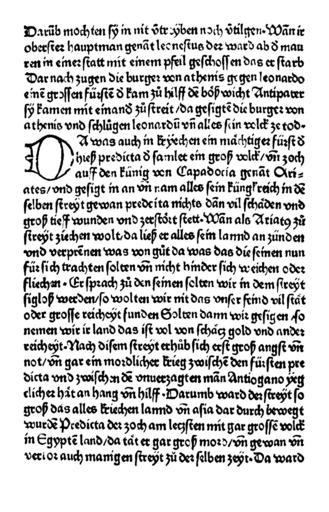 Darūb mochten sy in nit v̄trẏben noch v̄tilgen·Wān ir
oberster hauptman genāt leonestus der ward ab d̄ mau
ren in einer statt mit einem pfeil geschossen das er starb
Dar nach zugen die burger von athenis gegen leonardo
einē grossen fürstē d̄ kam zů hilff dē bőß wicht Antipater
sy kamen mit einand̄ zů streit/da gesigtē die burger von
athenis vnd schlügen leonardū vn̄ alles sin volck ze tod·
DA was auch in krÿechen ein mächtiger fürst d̄
hieß predicta d̄ samlet ein groß volck/vn̄ zoch
auff den künig von Capadocia genāt Ari-
ates/vnd gesigt in an vn̄ nam alles sein küngkreich in dē
selben streyt gewan predicta nichts dan̄ vil schāden vnd
groß tieff wunden vnd zerstőrt stett·Wān als Ariatꝰ zů
streyt ziechen wolt/da ließ er alles sein lannd an zünden
vnd verprēnen was von gůt da was das die seinen nun
für sich trachten solten vn̄ nicht hinder sich weichen oder
fliechen·Er sprach zů den seinen solten wir in dem streyt
sigloß werden/so wolten wir nit das vnser feind vil stāt
oder grosse reicheyt funden Solten dann wir gesigen·so
nemen wir ir land das ist vol von schācz gold vnd ander
reicheyt·Nach disem streyt erhůb sich erst groß angst vn̄
not/vn̄ gar ein mordlicher krieg zwischē den fürsten pre
dicta vnd zwischen dē vnuerzagten mān Antiogano yeg
elicher hāt an hang vn̄ hilff·Darumb ward der streyt so
groß das alles kriechen lannd vn̄ asia dar durch bewegt
wurdē Predicta der zoch am leczsten mit gar grossē volck
in Egyptē land/da tāt er gar groß mord/vn̄ gewan vn̄
verlor auch manigen streyt zů der selben zeyt·Da ward